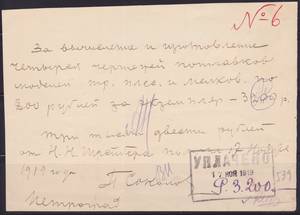 № 6
За вычисление и изготовление
четырех чертежей поплавков
моделей тр. плав. и маяков по
800 рублей за экземпляр – 3200 р.
Три тысячи двести рублей
от Н. Н. получил 12 Ноября
1919 года П. Соколов
Петроград
УПЛАЧЕНО
12 НОЯ 1919
Р. 3.200